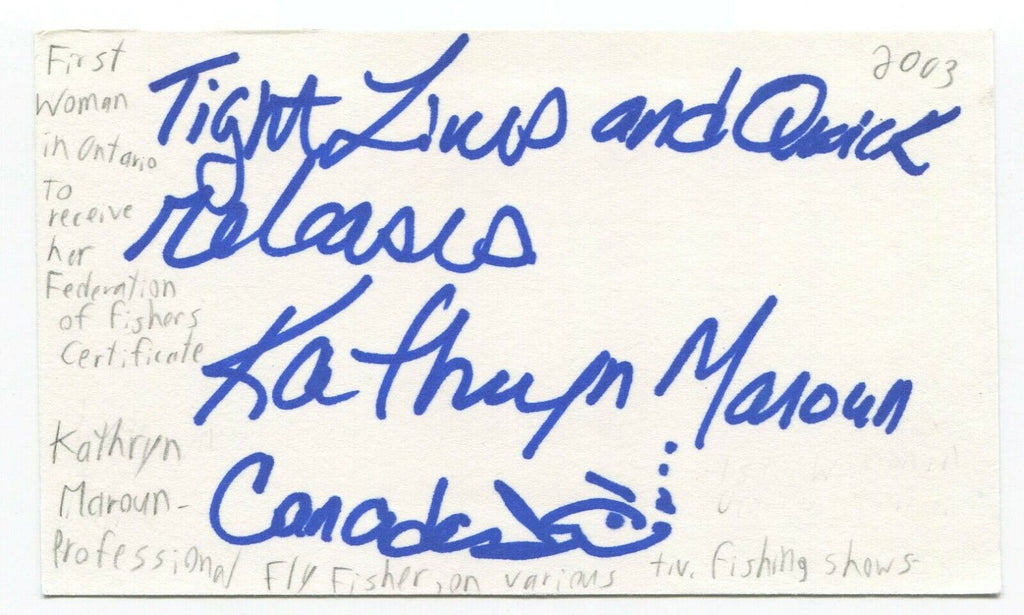 2003
First
Woman
in Ontario
To
receive
her
Federation
of fishers
Certificate
Tight Lines and Quick
releases
Kathryn Maroun
Canada
Kathryn
Maroun-
Professional Fly Fisher, on various t.v. fishing shows